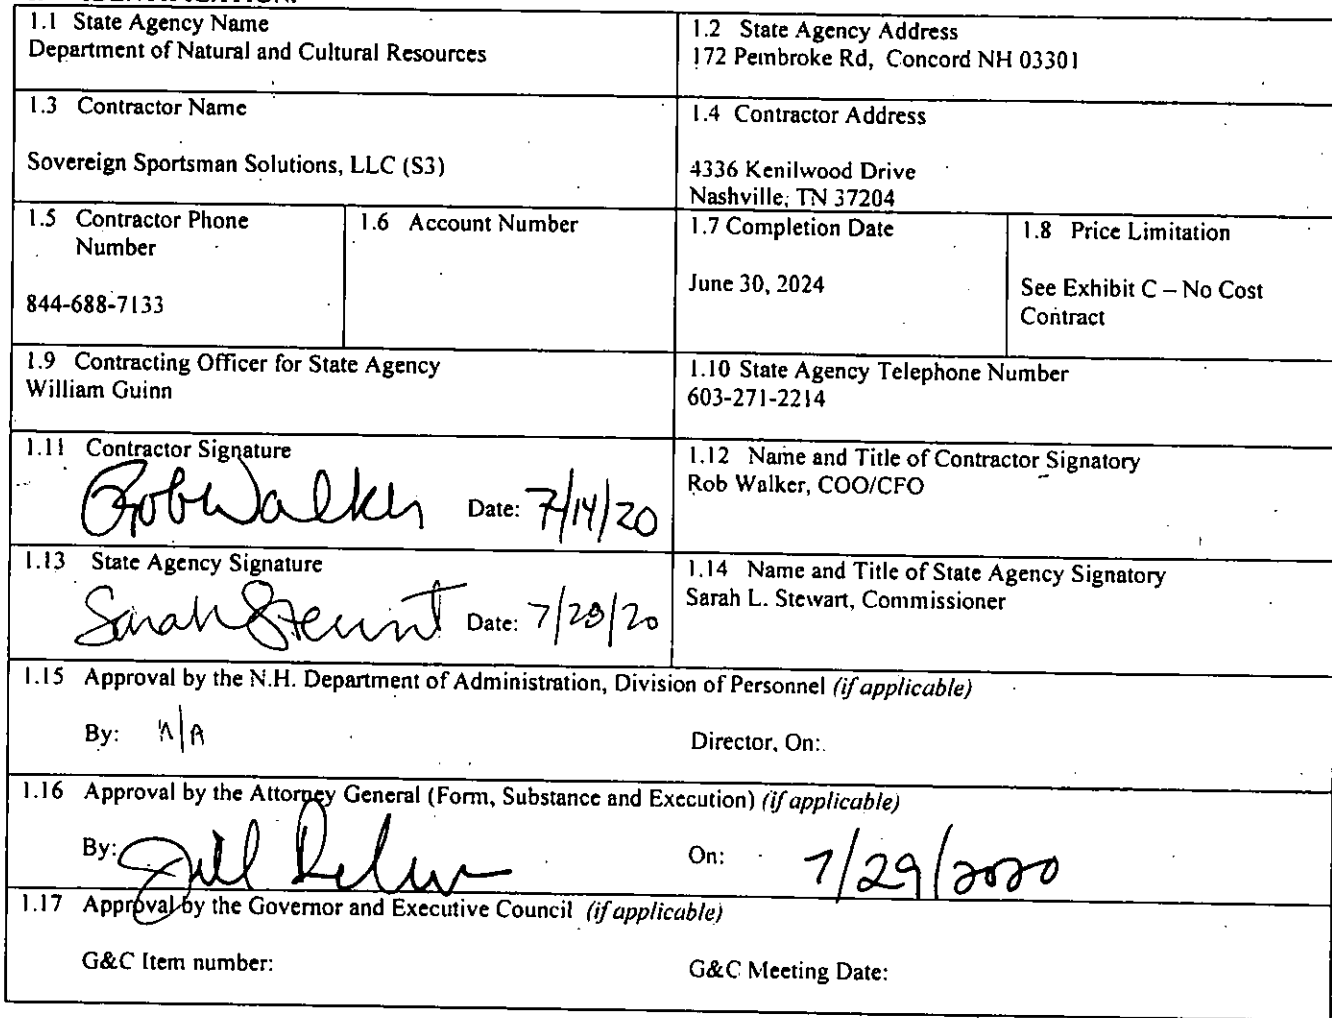 1.1 State Agency Name
Department of Natural and Cultural Resources
1.2 State Agency Address
172 Pembroke Rd, Concord NH 03301
1.3 Contractor Name
Sovereign Sportsman Solutions, LLC (S3)
1.4 Contractor Address
4336 Kenilwood Drive
Nashville, TN 37204
1.5 Contractor Phone
Number
844-688-7133
1.6 Account Number
1.7 Completion Date
June 30, 2024
1.8 Price Limitation
See Exhibit C – No Cost
Contract
1.9 Contracting Officer for State Agency
William Guinn
1.10 State Agency Telephone Number
603-271-2214
1.11 Contractor Signature
Rob Walker Date: 7/14/20
1.12 Name and Title of Contractor Signatory
Rob Walker, COO/CFO
1.13 State Agency Signature
Sarah Stewart Date: 7/28/20
1.14 Name and Title of State Agency Signatory
Sarah L. Stewart, Commissioner
1.15 Approval by the N.H. Department of Administration, Division of Personnel (if applicable)
By: N/A
Director, On:
1.16 Approval by the Attorney General (Form, Substance and Execution) (if applicable)
By: Jill
On: 7/29/2020
1.17 Approval by the Governor and Executive Council (if applicable)
G&C Item number:
G&C Meeting Date: